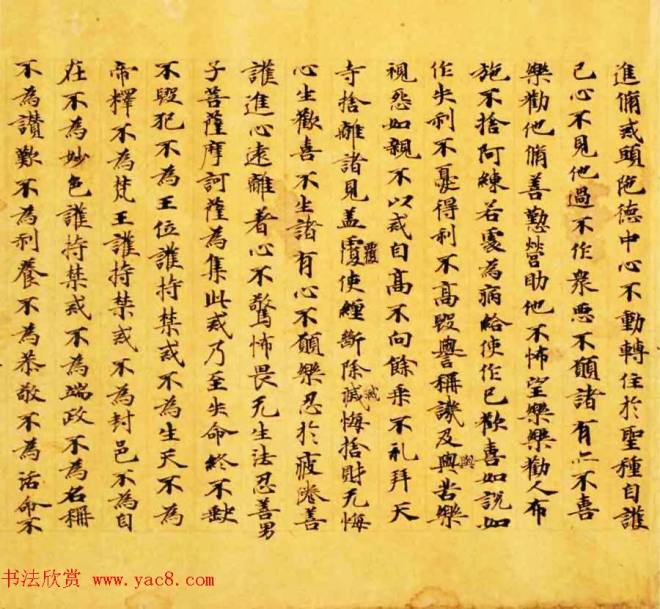 進脩戒頭陁德中心不動轉住於聖種自護
己心不見他過不作衆惡不願諸有亦不喜
樂勸他脩善懃營助他不怖望樂樂勸人布
施不捨阿練若處為病給使作已歡喜如說如
作失利不憂得利不高毀譽稱譏及與苦樂
視怨如親不以戒自高不向餘乘不礼拜天
寺捨離諸見盖覆使纏斷除戲悔捨財无悔
心生歡喜不生諸有心不願樂忍於疲惓善
護進心遠離者心不驚怖畏无生法忍善男
子菩薩摩訶薩為集此戒乃至失命終不
不毀犯不為王位護持禁戒不為生天不為
帝釋不為梵王護持禁戒不為封邑不為自
在不為妙色護持禁戒不為端政不為名稱
不為讚歎不為利養不為恭敬不為活命不
书法欣赏 www.yac8.com